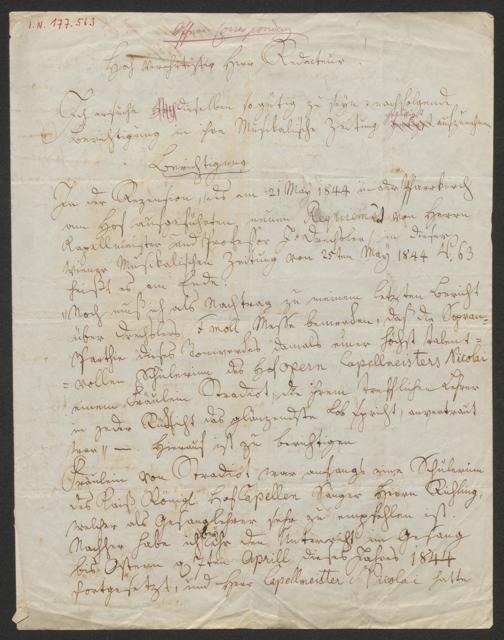 I.N. 177.563
Offene Correspondenz
Hoch Verehrtester Herr Redacteur!
Ich ersuche dieselben so gütig zu seyn, nachfolgende
berichtigung in ihre Musikalische Zeitung aufzunehmen
Berichtigung
In der Rezension, des am 21 May 1844 in der Pfarrkirche
am Hof aufgeführten, neuen Requiems von Herrn
Kapellmeister und Professor J. Drechsler, in dieser
Wiener Musikalischen Zeitung von 25ten May 1844 N, 63
heißt es am Ende:
„Noch muß ich als Nachtrag zu meinem letzten Bericht
über Drechslers F moll Messe bemerken, daß die Sopran-
Parthie dieses Tonwerkes damals einer höchst talent-
-vollen Schülerin des Hofopern Capellmeisters Nicolai
einem Fräulein Stradiot, die ihrem trefflichen Lehrer
in jeder Rücksicht das glänzendste Lob spricht, anvertraut
war" — Hierauf ist zu berichtigen
Fräulein von Stradiot war anfangs eine Schülerin
des Kais. Königl. Hofcapellen Sänger Herrn Ruhling,
welcher als Gesanglehrer sehr zu empfehlen ist.
Nachher habe ich ihr den Unterricht im Gesang
bis Ostern 7ten Aprill dieses Jahres 1844
fortgesetzt, und Herr Capellmeister Nicolai hatte